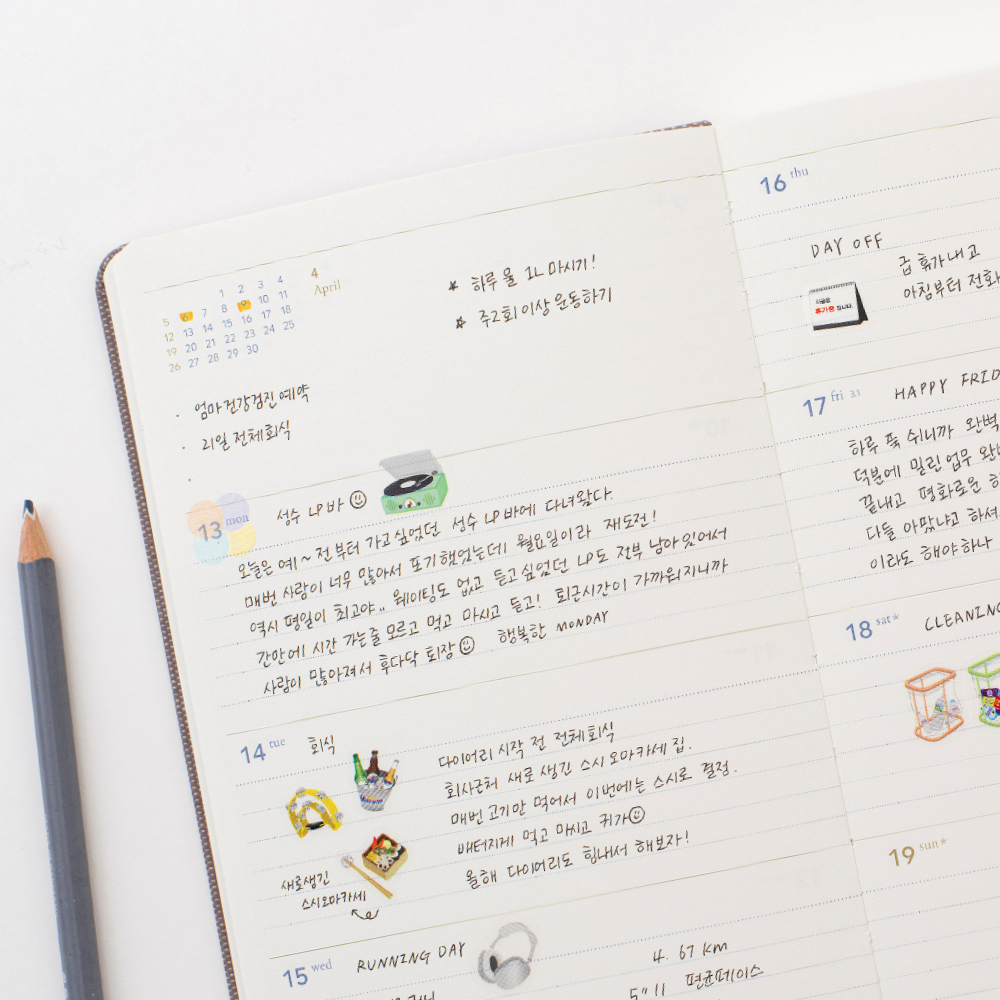 4
April
1 2 3 4
5 6 7 8 9 10 11
12 13 14 15 16 17 18
19 20 21 22 23 24 25
26 27 28 29 30
* 하루 물 1L 마시기!
* 주2회 이상 운동하기
· 엄마 건강검진 예약
· 21일 전체회식
·
13 mon 성수 LP 바
오늘은 예~전부터 가고싶었던 성수 LP 바에 다녀왔다
매번 사람이 너무 많아서 포기했었는데 월요일이라 재도전!
역시 평일이 최고야.. 웨이팅도 없고 듣고싶었던 LP도 전부 남아있어서
간만에 시간 가는줄 모르고 먹고 마시고 듣고! 퇴근시간이 가까워지니까
사람이 많아져서 후다닥 퇴장 행복한 MONDAY
14 tue 회식
다이어리 시작 전 전체회식
회사근처 새로 생긴 스시 오마카세 집.
매번 고기만 먹어서 이번에는 스시로 결정.
배터지게 먹고 마시고 귀가
올해 다이어리도 힘내서 해보자!
새로생긴
스시오마카세
15 wed RUNNING DAY
4. 67 km
5" 11 평균페이스
16 thu
DAY OFF
급 휴가내고
아침부터 전화
지금은
휴가중 입니다.
17 fri 3.1 HAPPY FRID
하루 푹 쉬니까 완벽
덕분에 밀린 업무 완
끝내고 평화로운
다들 아팠냐고 하셔
이라도 해야하나
18 sat* CLEANING
19 sun*